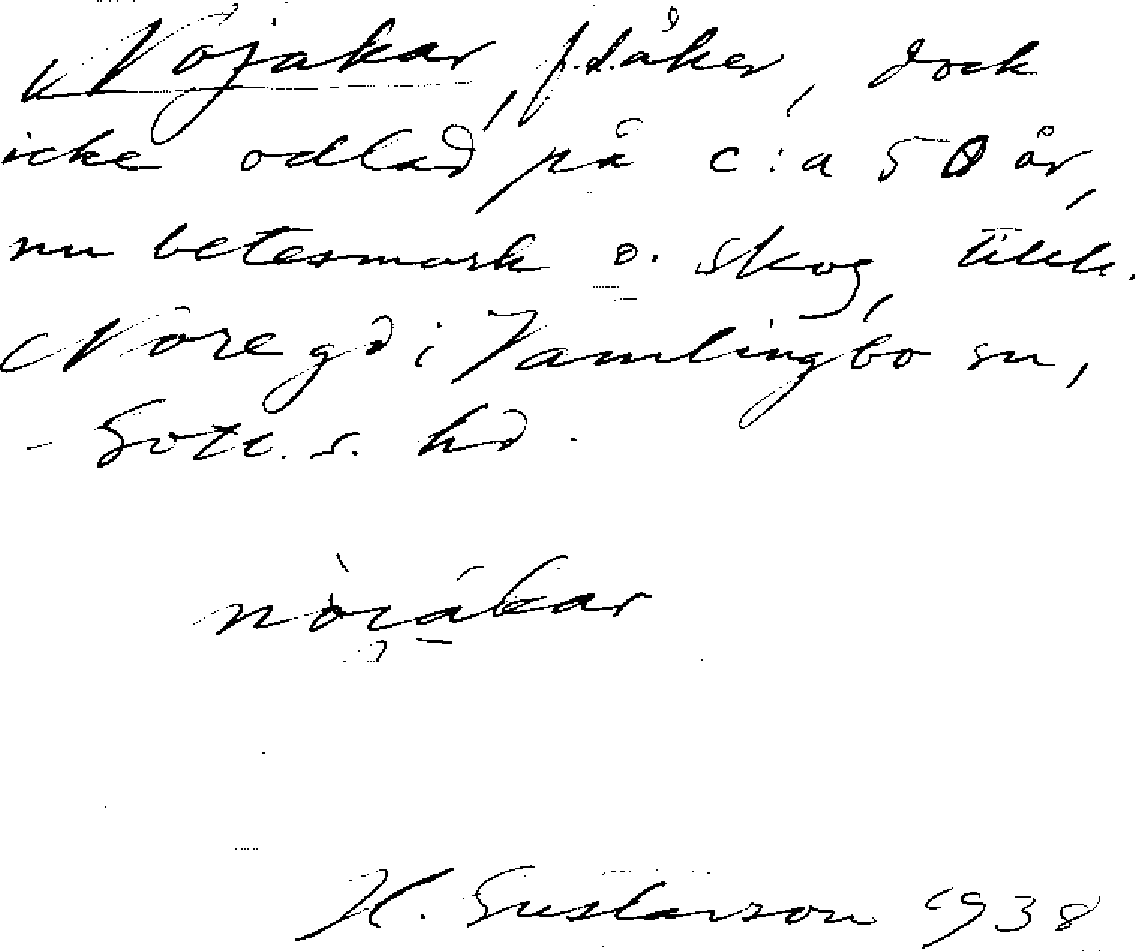 Nojakar, f.d. åker, dock
icke odlad på c:a 50 år,
nu betesmark o. skog, tillh.
Nore gd i Vamlingbo sn,
Gotl. s. hd.
H. Gustavson 1938